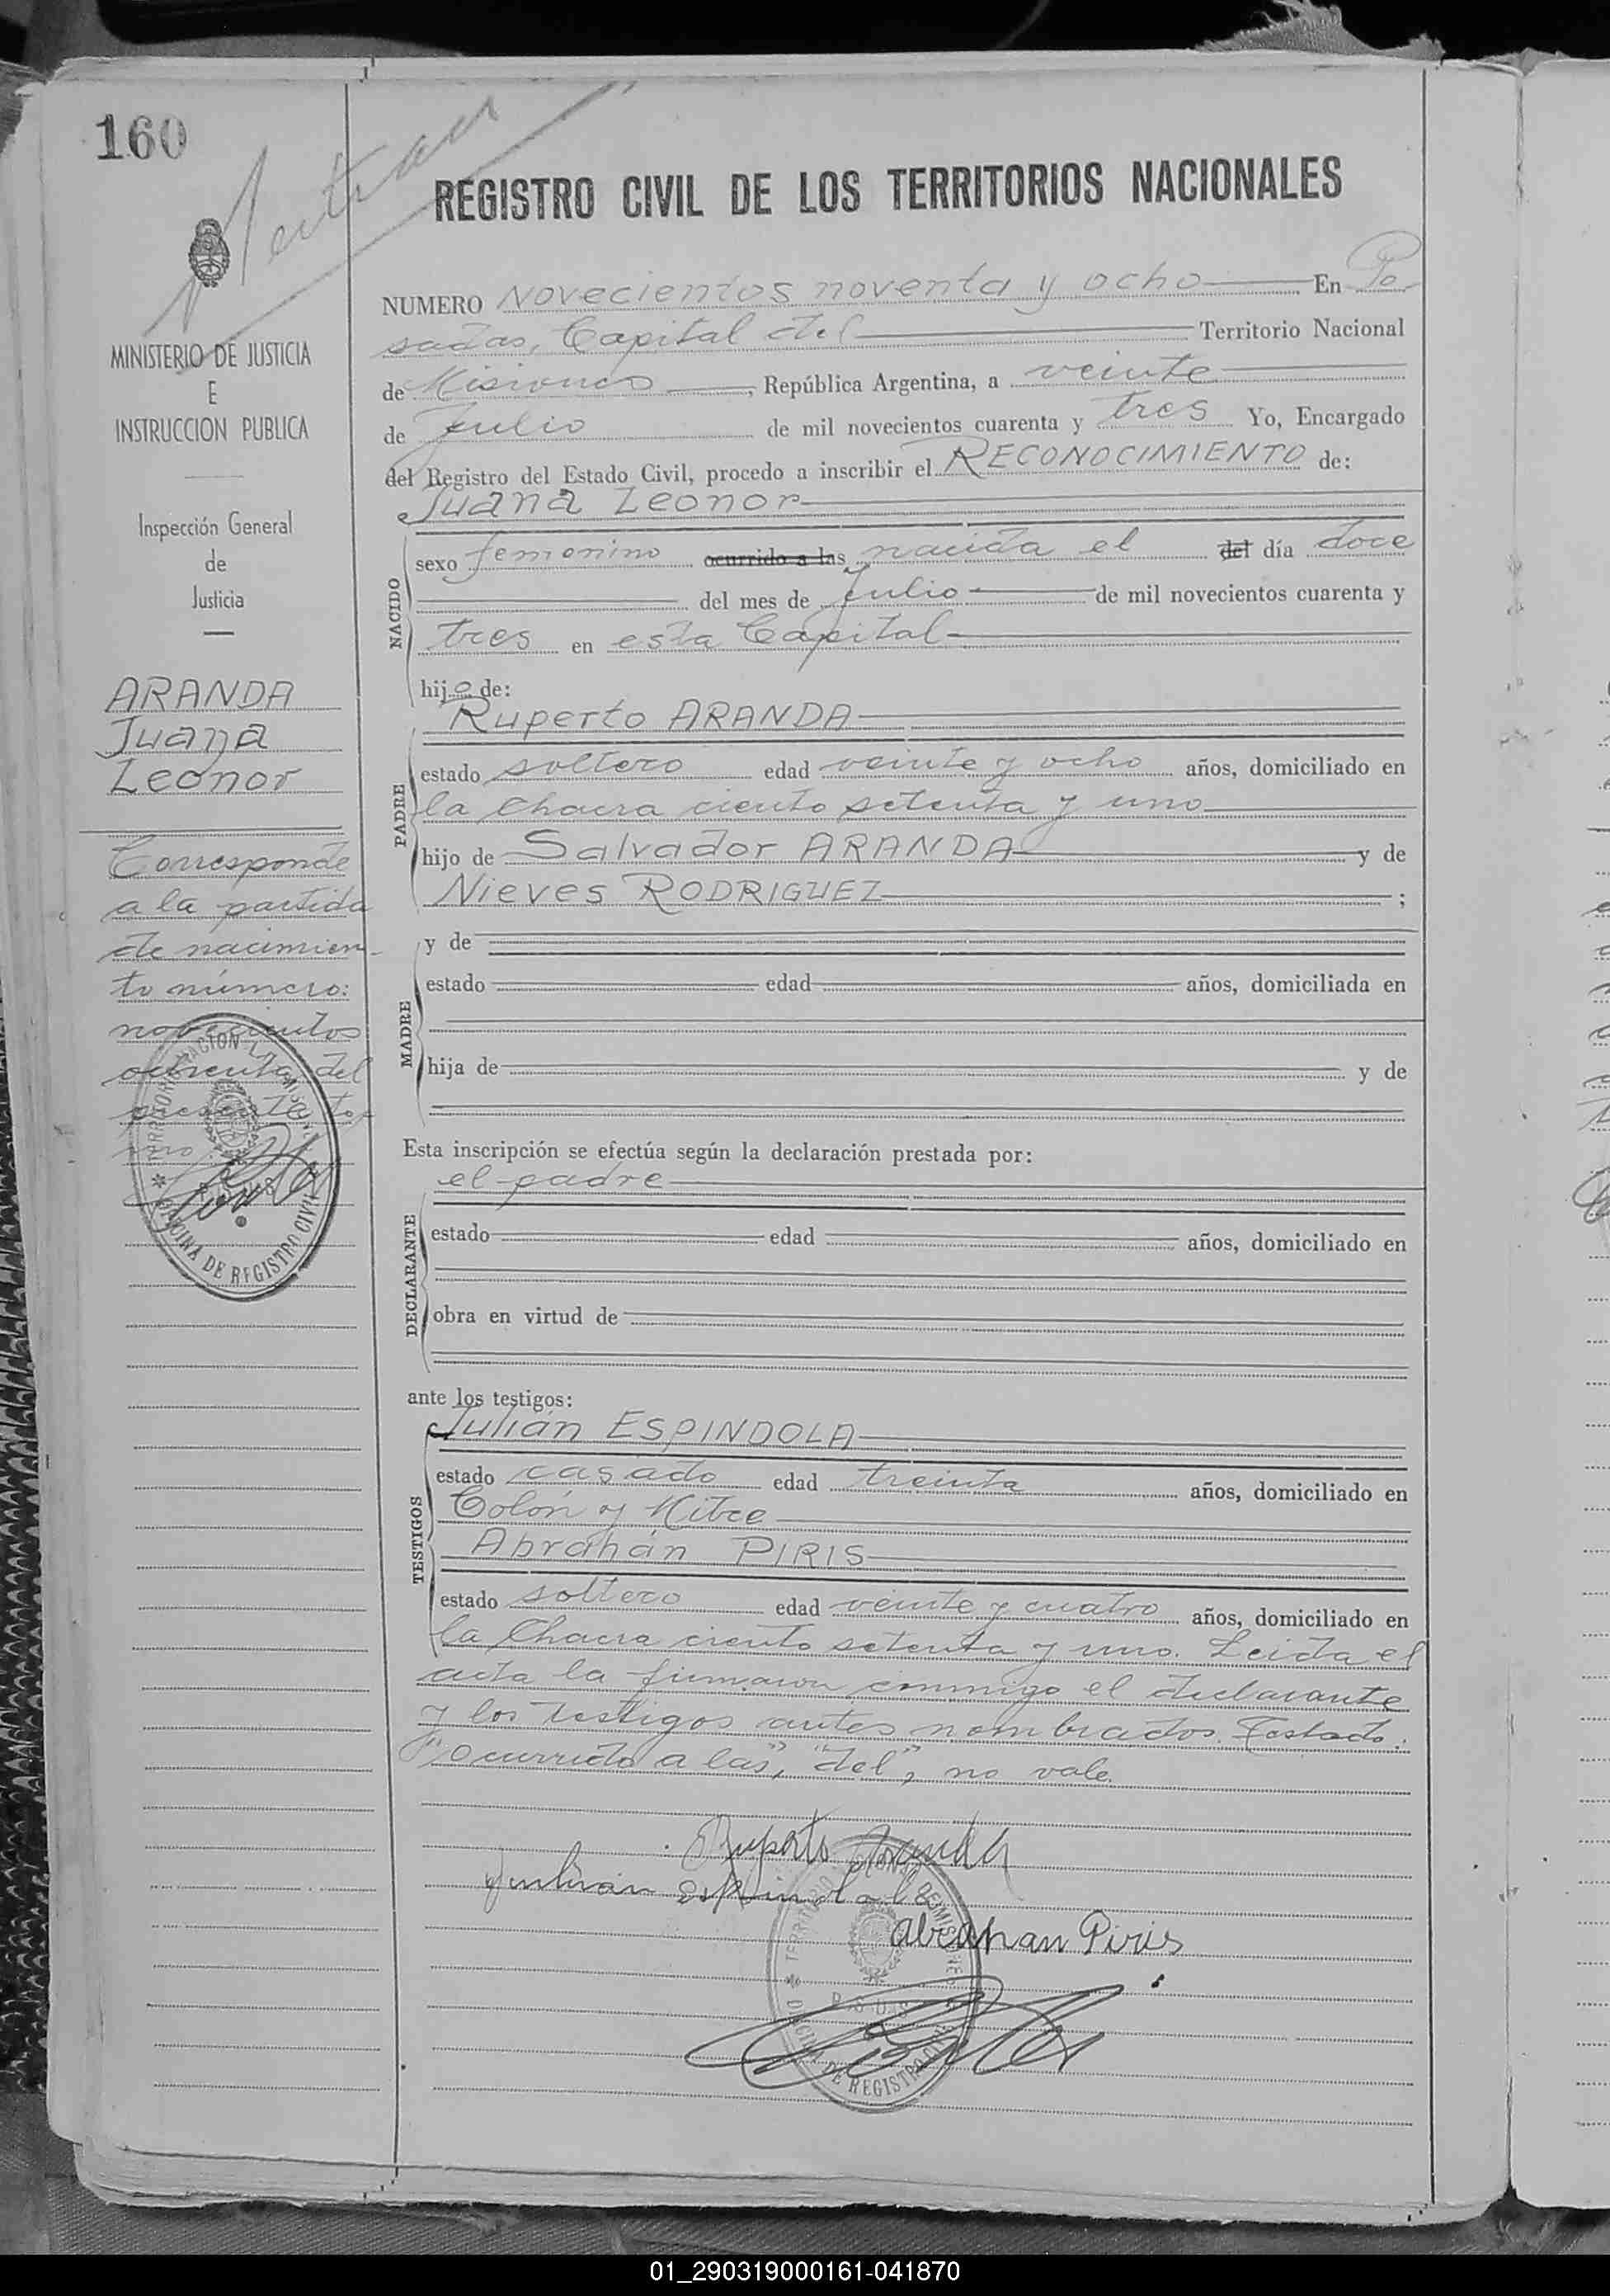 160
REGISTRO CIVIL DE LOS TERRITORIOS NACIONALES
MINISTERIO DE JUSTICIA
E
INSTRUCCION PUBLICA
Inspección General
de
Justicia
ARANDA
Juana
Leonor
Corresponde
a la partida
de nacimien-
to número:
novecientos
ochenta del
presente to-
mo
OFICINA DE REGISTRO CIVIL
NUMERO Novecientos noventa y ocho En Po-
sadas, Capital del Territorio Nacional
de Misiones, República Argentina, a veinte
de Julio de mil novecientos cuarenta y tres Yo, Encargado
del Registro del Estado Civil, procedo a inscribir el RECONOCIMIENTO de:
Juana Leonor
NACIDO
sexo femenino ocurrido a las nacida el del día doce
del mes de Julio de mil novecientos cuarenta y
tres en esta Capital
hija de:
Ruperto ARANDA
PADRE
estado soltero edad veinte y ocho años, domiciliado en
la Chacra ciento setenta y uno
hijo de Salvador ARANDA y de
Nieves RODRIGUEZ ;
y de
MADRE
estado edad años, domiciliada en
hija de y de
Esta inscripción se efectúa según la declaración prestada por:
el padre
DECLARANTE
estado edad años, domiciliado en
obra en virtud de
ante los testigos:
Julián ESPINDOLA
TESTIGOS
estado casado edad treinta años, domiciliado en
Colón y Mitre
Abrahán PIRIS
estado soltero edad veinte y cuatro años, domiciliado en
la Chacra ciento setenta y uno. Leida el
acta la firmaron conmigo el declarante
y los testigos antes nombrados. Testado:
"ocurrido a las", "del", no vale.
Ruperto Aranda
Abrahan Piris
DE REGISTRO CIVIL
01_290319000161-041870